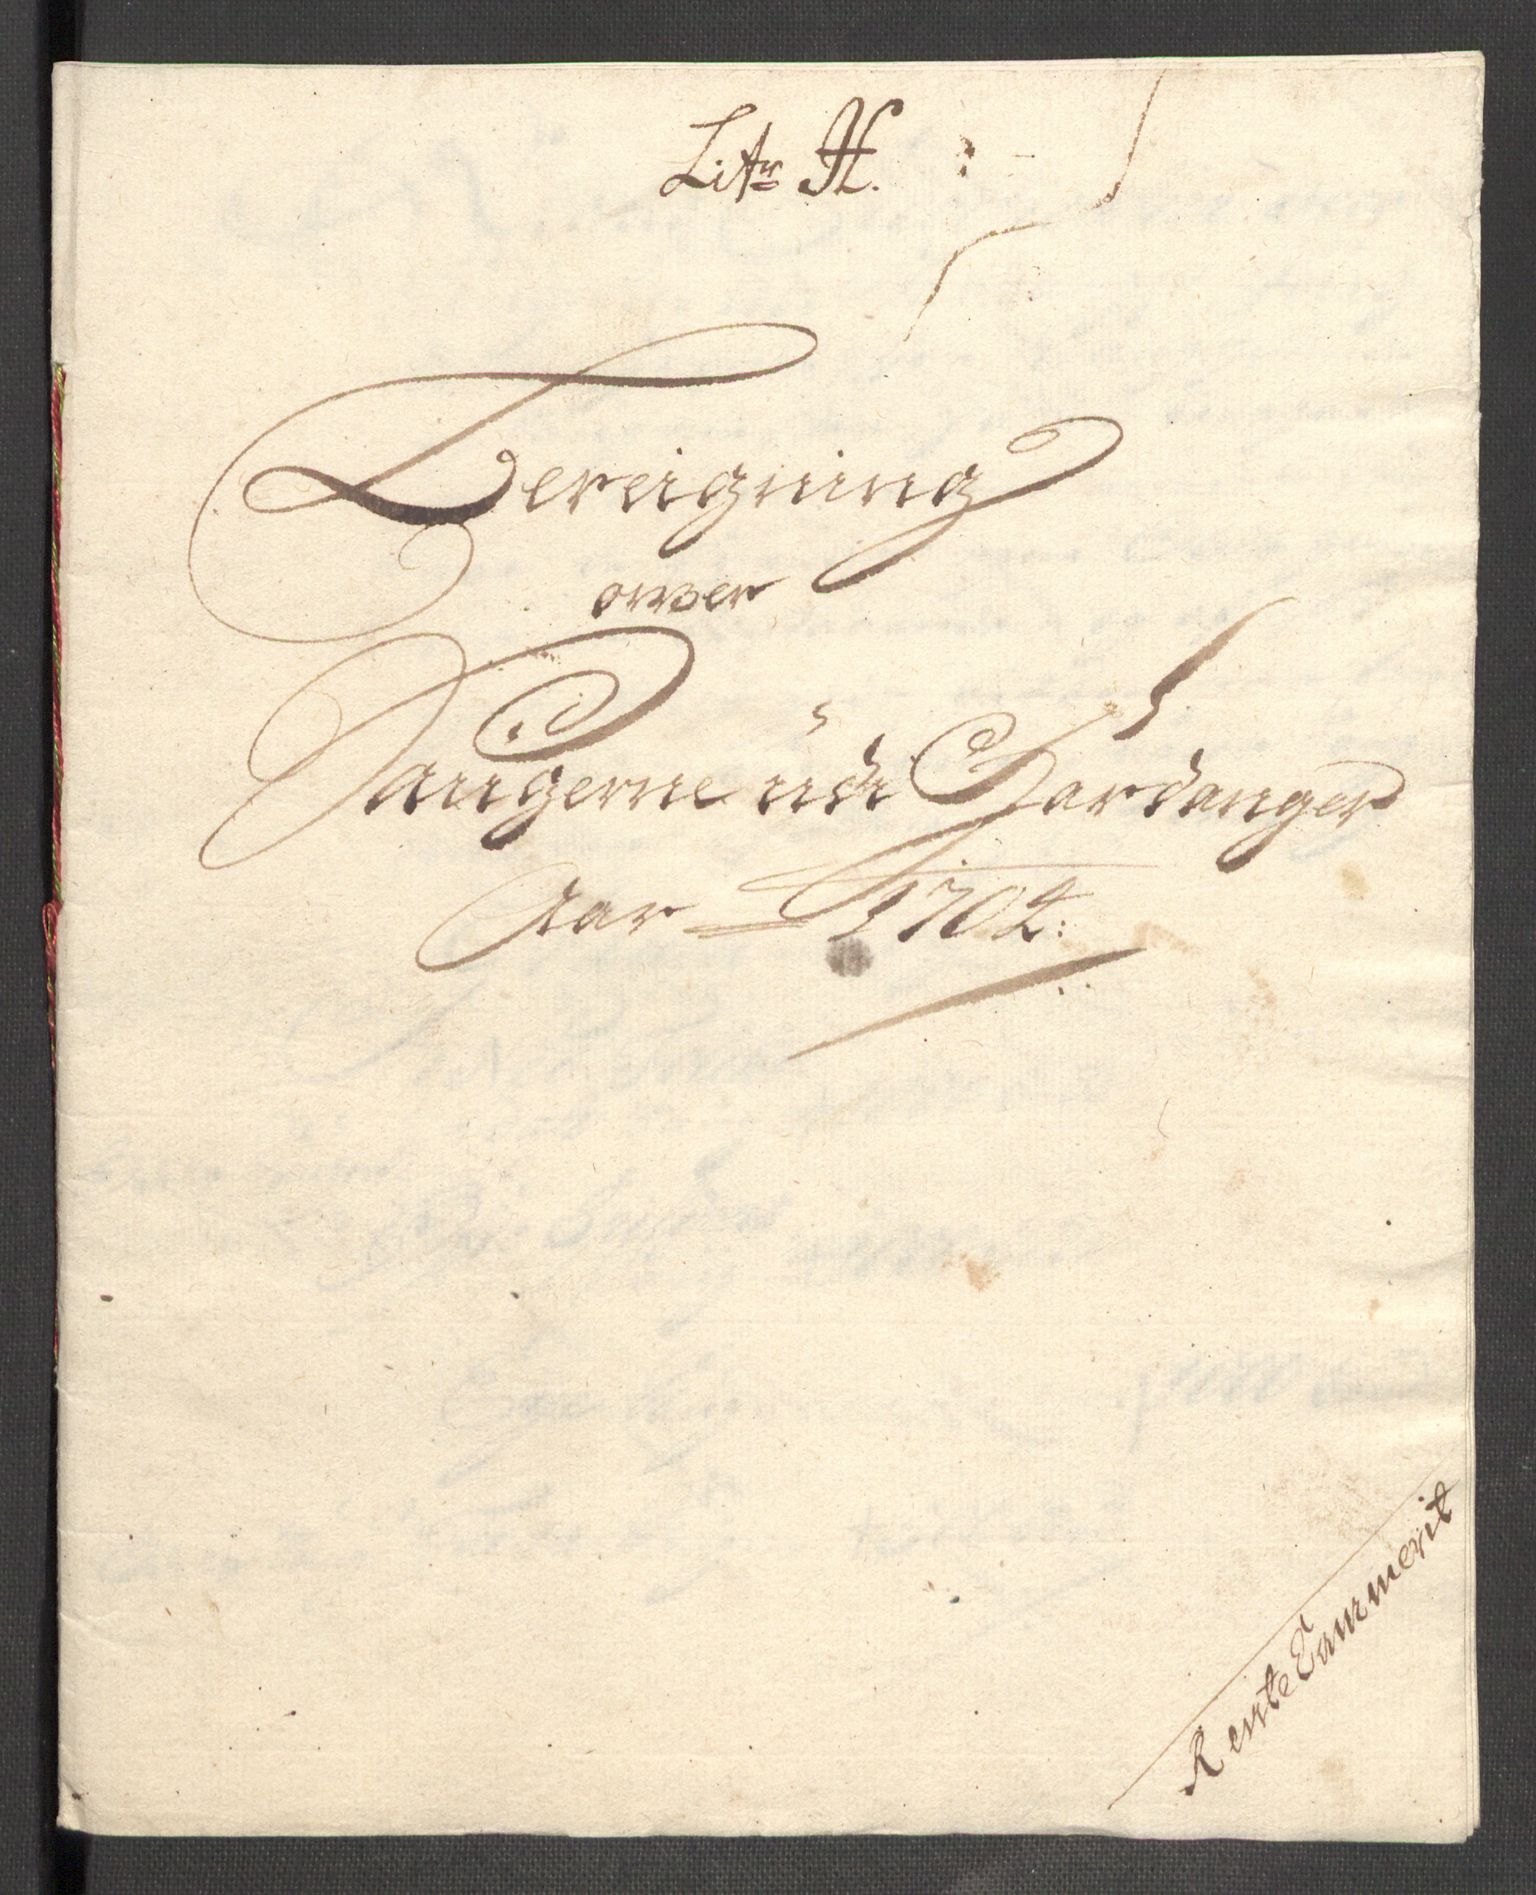 Litr H.
Bereigning
over
Saugerne udi Hardanger
Aar 1704:
RenteCammerit